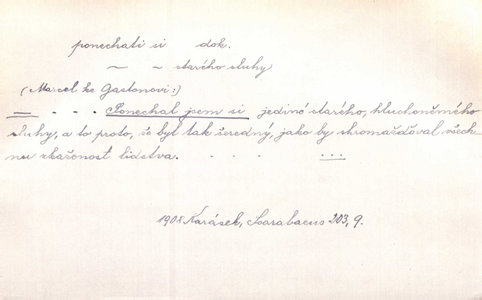 ponechati si dok.
~ ~ starého sluhy
(Marcel ke Gastonovi:)
— . . . Ponechal jsem si jediné starého, hluchoněmého
sluhy, a to proto, že byl tak šeredný, jako by shromažďoval všech-
nu zkaženost lidstva. . . . ...
1908 Karásek, Scarabaeus 203, 9.